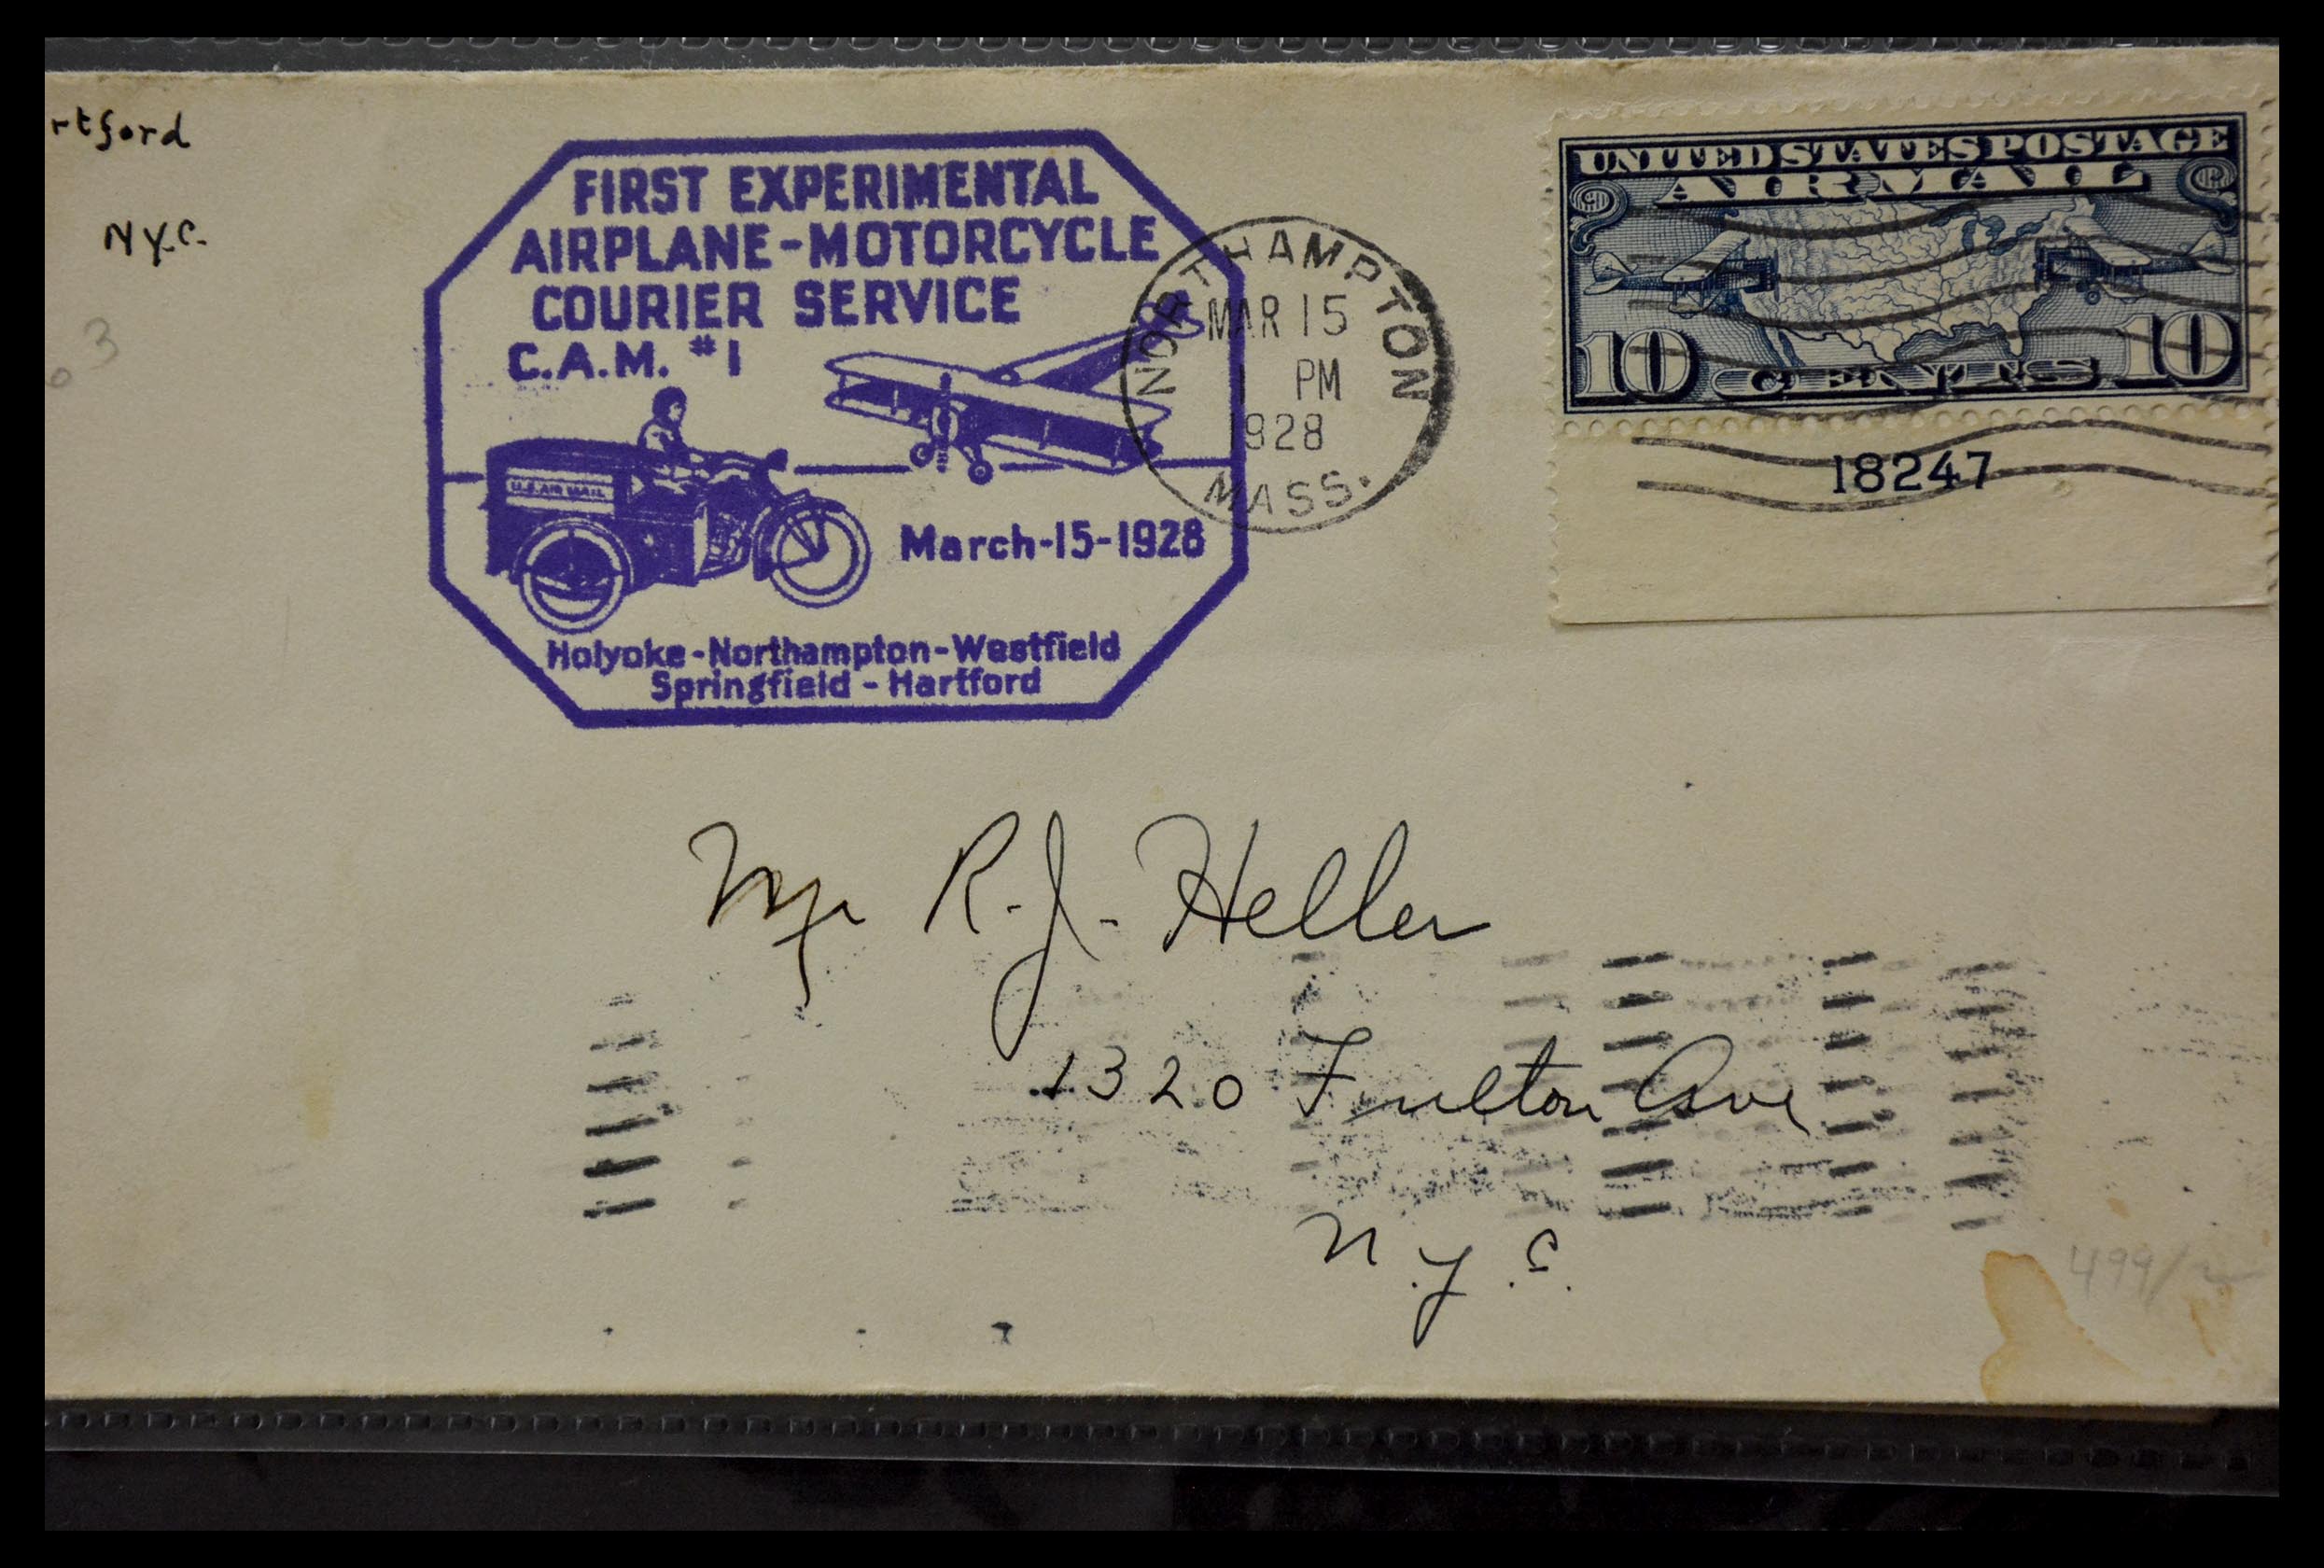 rtford
N.Y.C.
3
FIRST EXPERIMENTAL
AIRPLANE-MOTORCYCLE
COURIER SERVICE
C.A.M. #1
U.S. AIR MAIL
March-15-1928
Holyoke-Northampton-Westfield
Springfield - Hartford
NORTHAMPTON
MAR 15
1 PM
1928
MASS.
UNITED STATES POSTAGE
AIR MAIL
10 CENTS 10
18247
Mr R. J. Heller
1320 Fulton Ave
N.Y.C.
499/